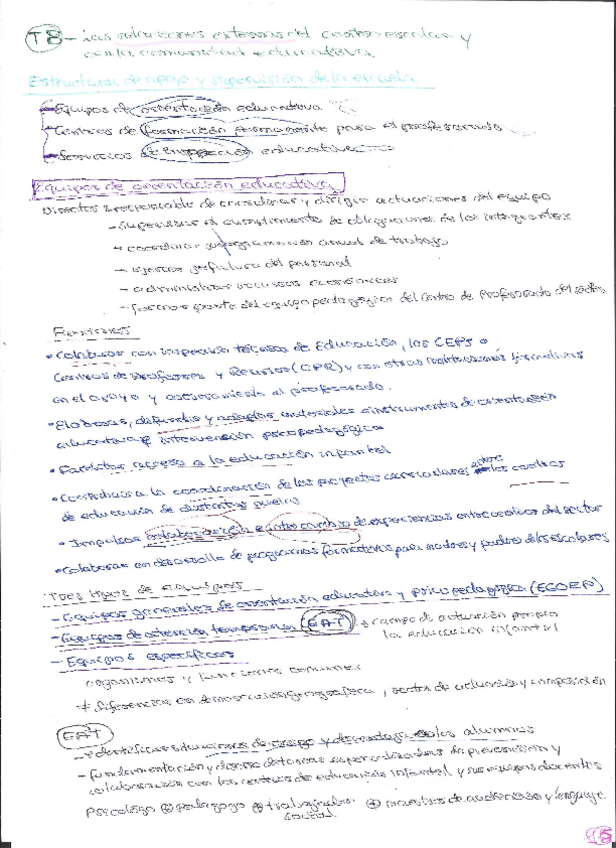 T8 - Las relaciones externas del centro escolar y
con la comunidad educativa
Estructuras de apoyo y supervisión de la escuela
- Equipos de orientación educativa
- Centros de formación permanente para el profesorado
- Servicios de inspección educativa
Equipos de orientación educativa
Director: responsable de coordinar y dirigir actuaciones del equipo
- Supervisar el cumplimiento de obligaciones de los integrantes
- coordinar programación anual de trabajo
- ejercer jefatura del personal
- administrar recursos económicos
- formar parte del equipo pedagógico del Centro de Profesorado del sector
Funciones
• Colaborar con inspección técnica de Educación, los CEPs o
Centros de Profesores y Recursos (CPR) y con otras instituciones formativas
en el apoyo y asesoramiento al profesorado.
• Elaborar, difundir y adaptar materiales e instrumentos de orientación
educativa e intervención psicopedagógica
• Facilitar acceso a la educación infantil
• Contribuir a la coordinación de los proyectos curriculares entre los centros
de educación de distintos niveles
• Impulsar colaboración e intercambio de experiencias entre centros del sector
• Colaborar en desarrollo de programas formativos para madres y padres de los escolares
Tres tipos de Equipos
- Equipos generales de orientación educativa y psicopedagógica (EGOEP)
- Equipos de atención temprana (EAT) campo de actuación propio
la educación infantil
- Equipos específicos
organismos y funciones comunes
≠ diferencias en demarcación geográfica, sector de actuación y composición
EAT
- Identificar situaciones de riesgo y desventaja de los alumnos
- fundamentación y diseño de tareas de prevención y
colaboración con los centros de educación infantil y sus equipos docentes
Psicólogo ⊕ pedagogo ⊕ trabajador social ⊕ maestros de audición y lenguaje
95